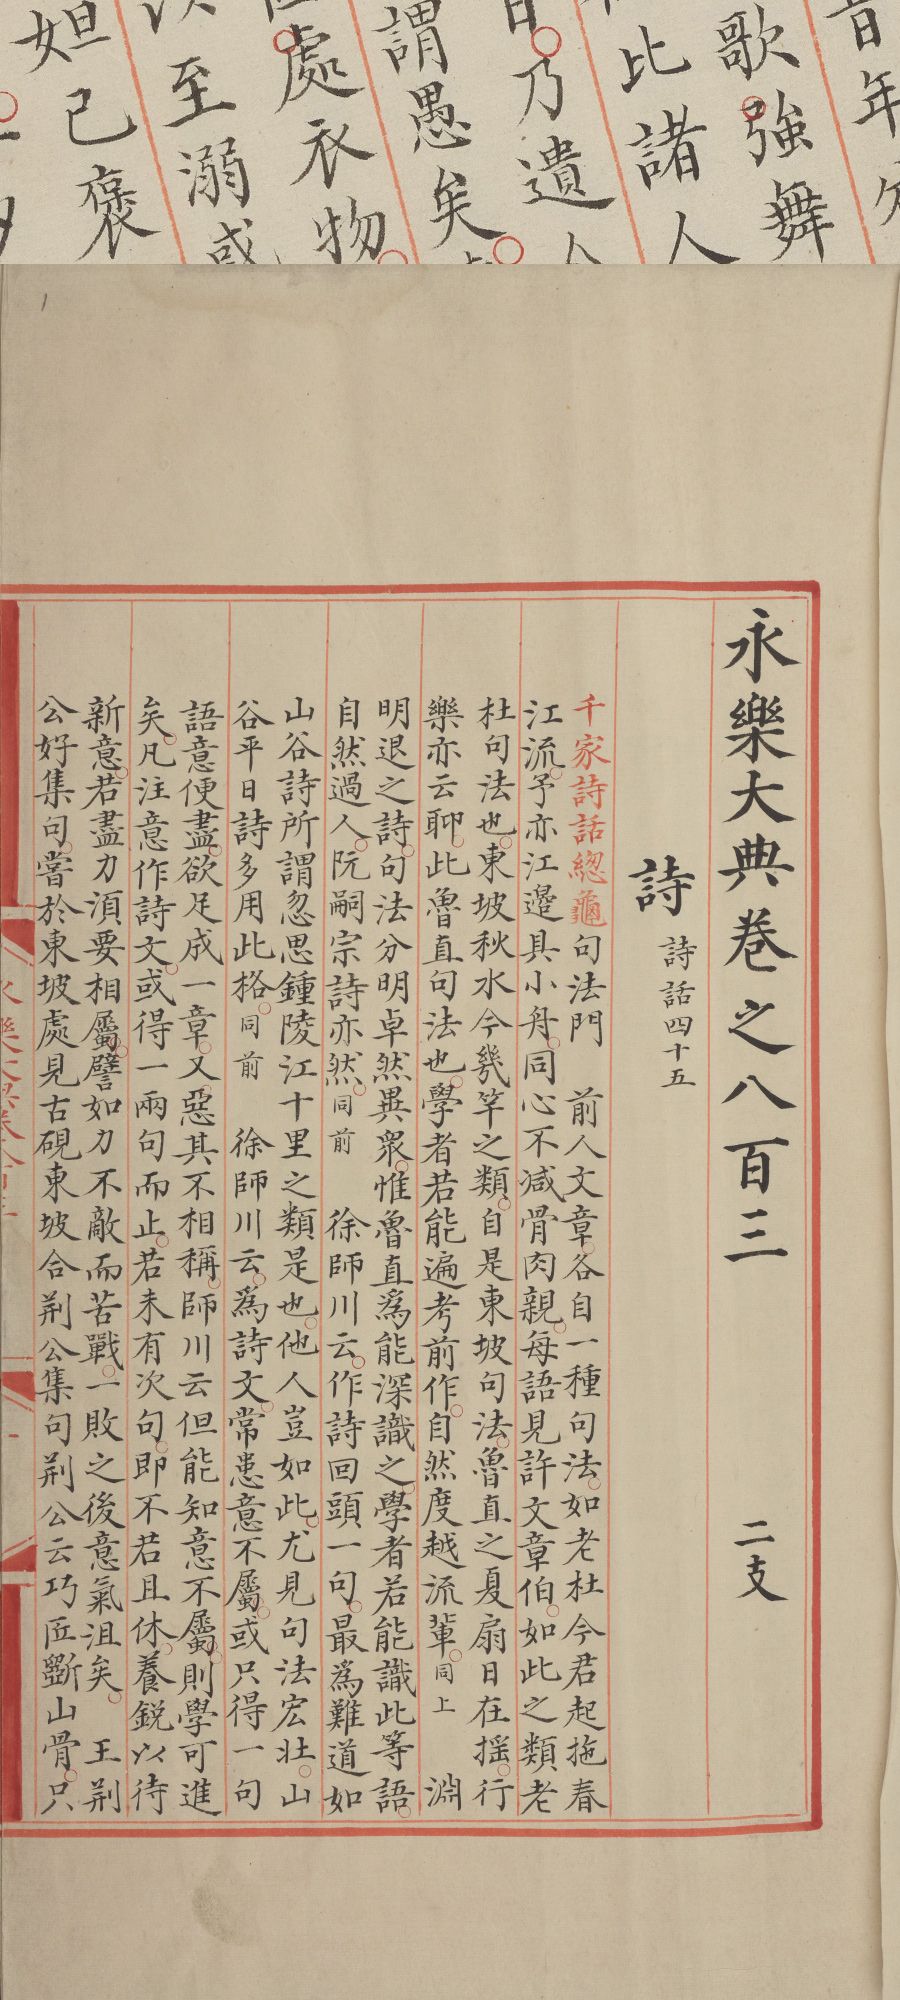 音年
歌強舞
比諸人
乃遺人
謂愚矣
處衣物
至溺或
妲己褒
永樂大典卷之八百三 二支
詩 詩話四十五
千家詩話總龜句法門 前人文章各自一種句法如老杜今君起拖春
江流予亦江邊具小舟同心不减骨肉親每語見許文章伯如此之類老
杜句法也東坡秋水今幾竿之類自是東坡句法魯直之夏扇日在揺行
樂亦云聊此魯直句法也學者若能遍考前作自然度越流輩同上 淵
明退之詩句法分明卓然異衆惟魯直爲能深識之學者若能識此等語
自然過人阮嗣宗詩亦然同前 徐師川云作詩回頭一句最爲難道如
山谷詩所謂忽思鍾陵江十里之類是也他人豈如此尤見句法宏壮山
谷平日詩多用此格同前 徐師川云爲詩文常患意不屬或只得一句
語意便盡欲足成一章又惡其不相稱師川云但能知意不屬則學可進
矣凡注意作詩文或得一兩句而止若未有次句即不若且休養鋭以待
新意若盡力湏要相屬譬如力不敵而苦戰一敗之後意氣沮矣 王荆
公好集句嘗於東坡處見古硯東坡合荆公集句荆公云巧匠斵山骨只
永樂大典卷八百三